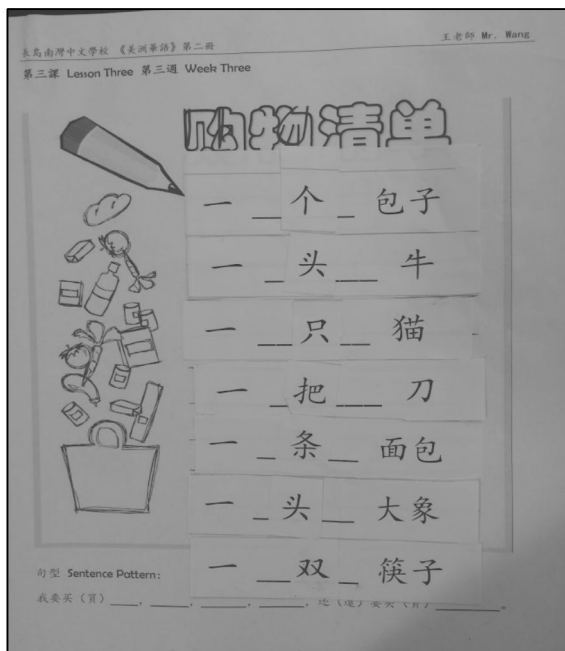 長島南灣中文學校 《美洲華語》第二冊 王老師 Mr. Wang
第三課 Lesson Three 第三週 Week Three
购物清单
一 __ 个 _ 包子
一 _ 头 ___ 牛
一 __ 只 __ 猫
一 _ 把 ___ 刀
一 _ 条 __ 面包
一 _ 头 __ 大象
一 __ 双 _ 筷子
句型 Sentence Pattern:
我要买（買）____, _____, _____, _____, 还（還）要买（買）________。